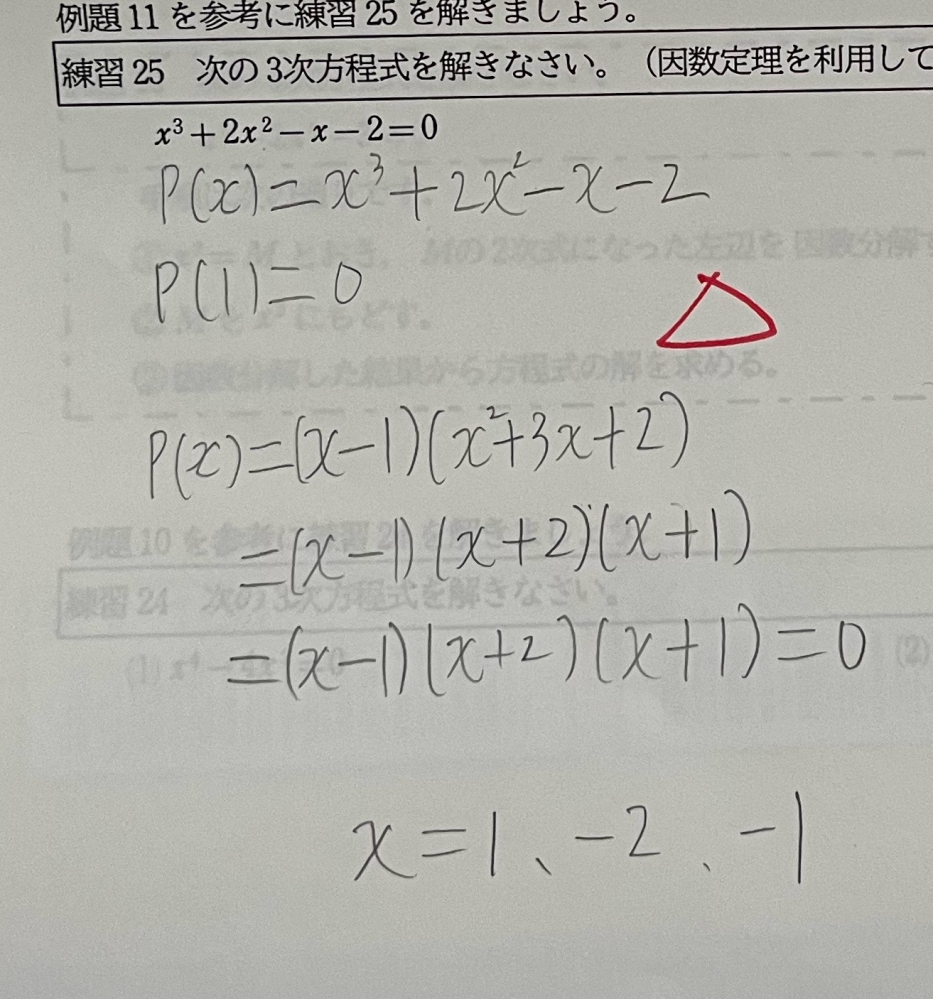 例題11を参考に練習25を解きましょう。
練習25 次の3次方程式を解きなさい。(因数定理を利用して
x³+2x²−x−2=0
P(x)=x³+2x²−x−2
P(1)=0
P(x)=(x−1)(x²+3x+2)
=(x−1)(x+2)(x+1)
=(x−1)(x+2)(x+1)=0
x=1、−2、−1